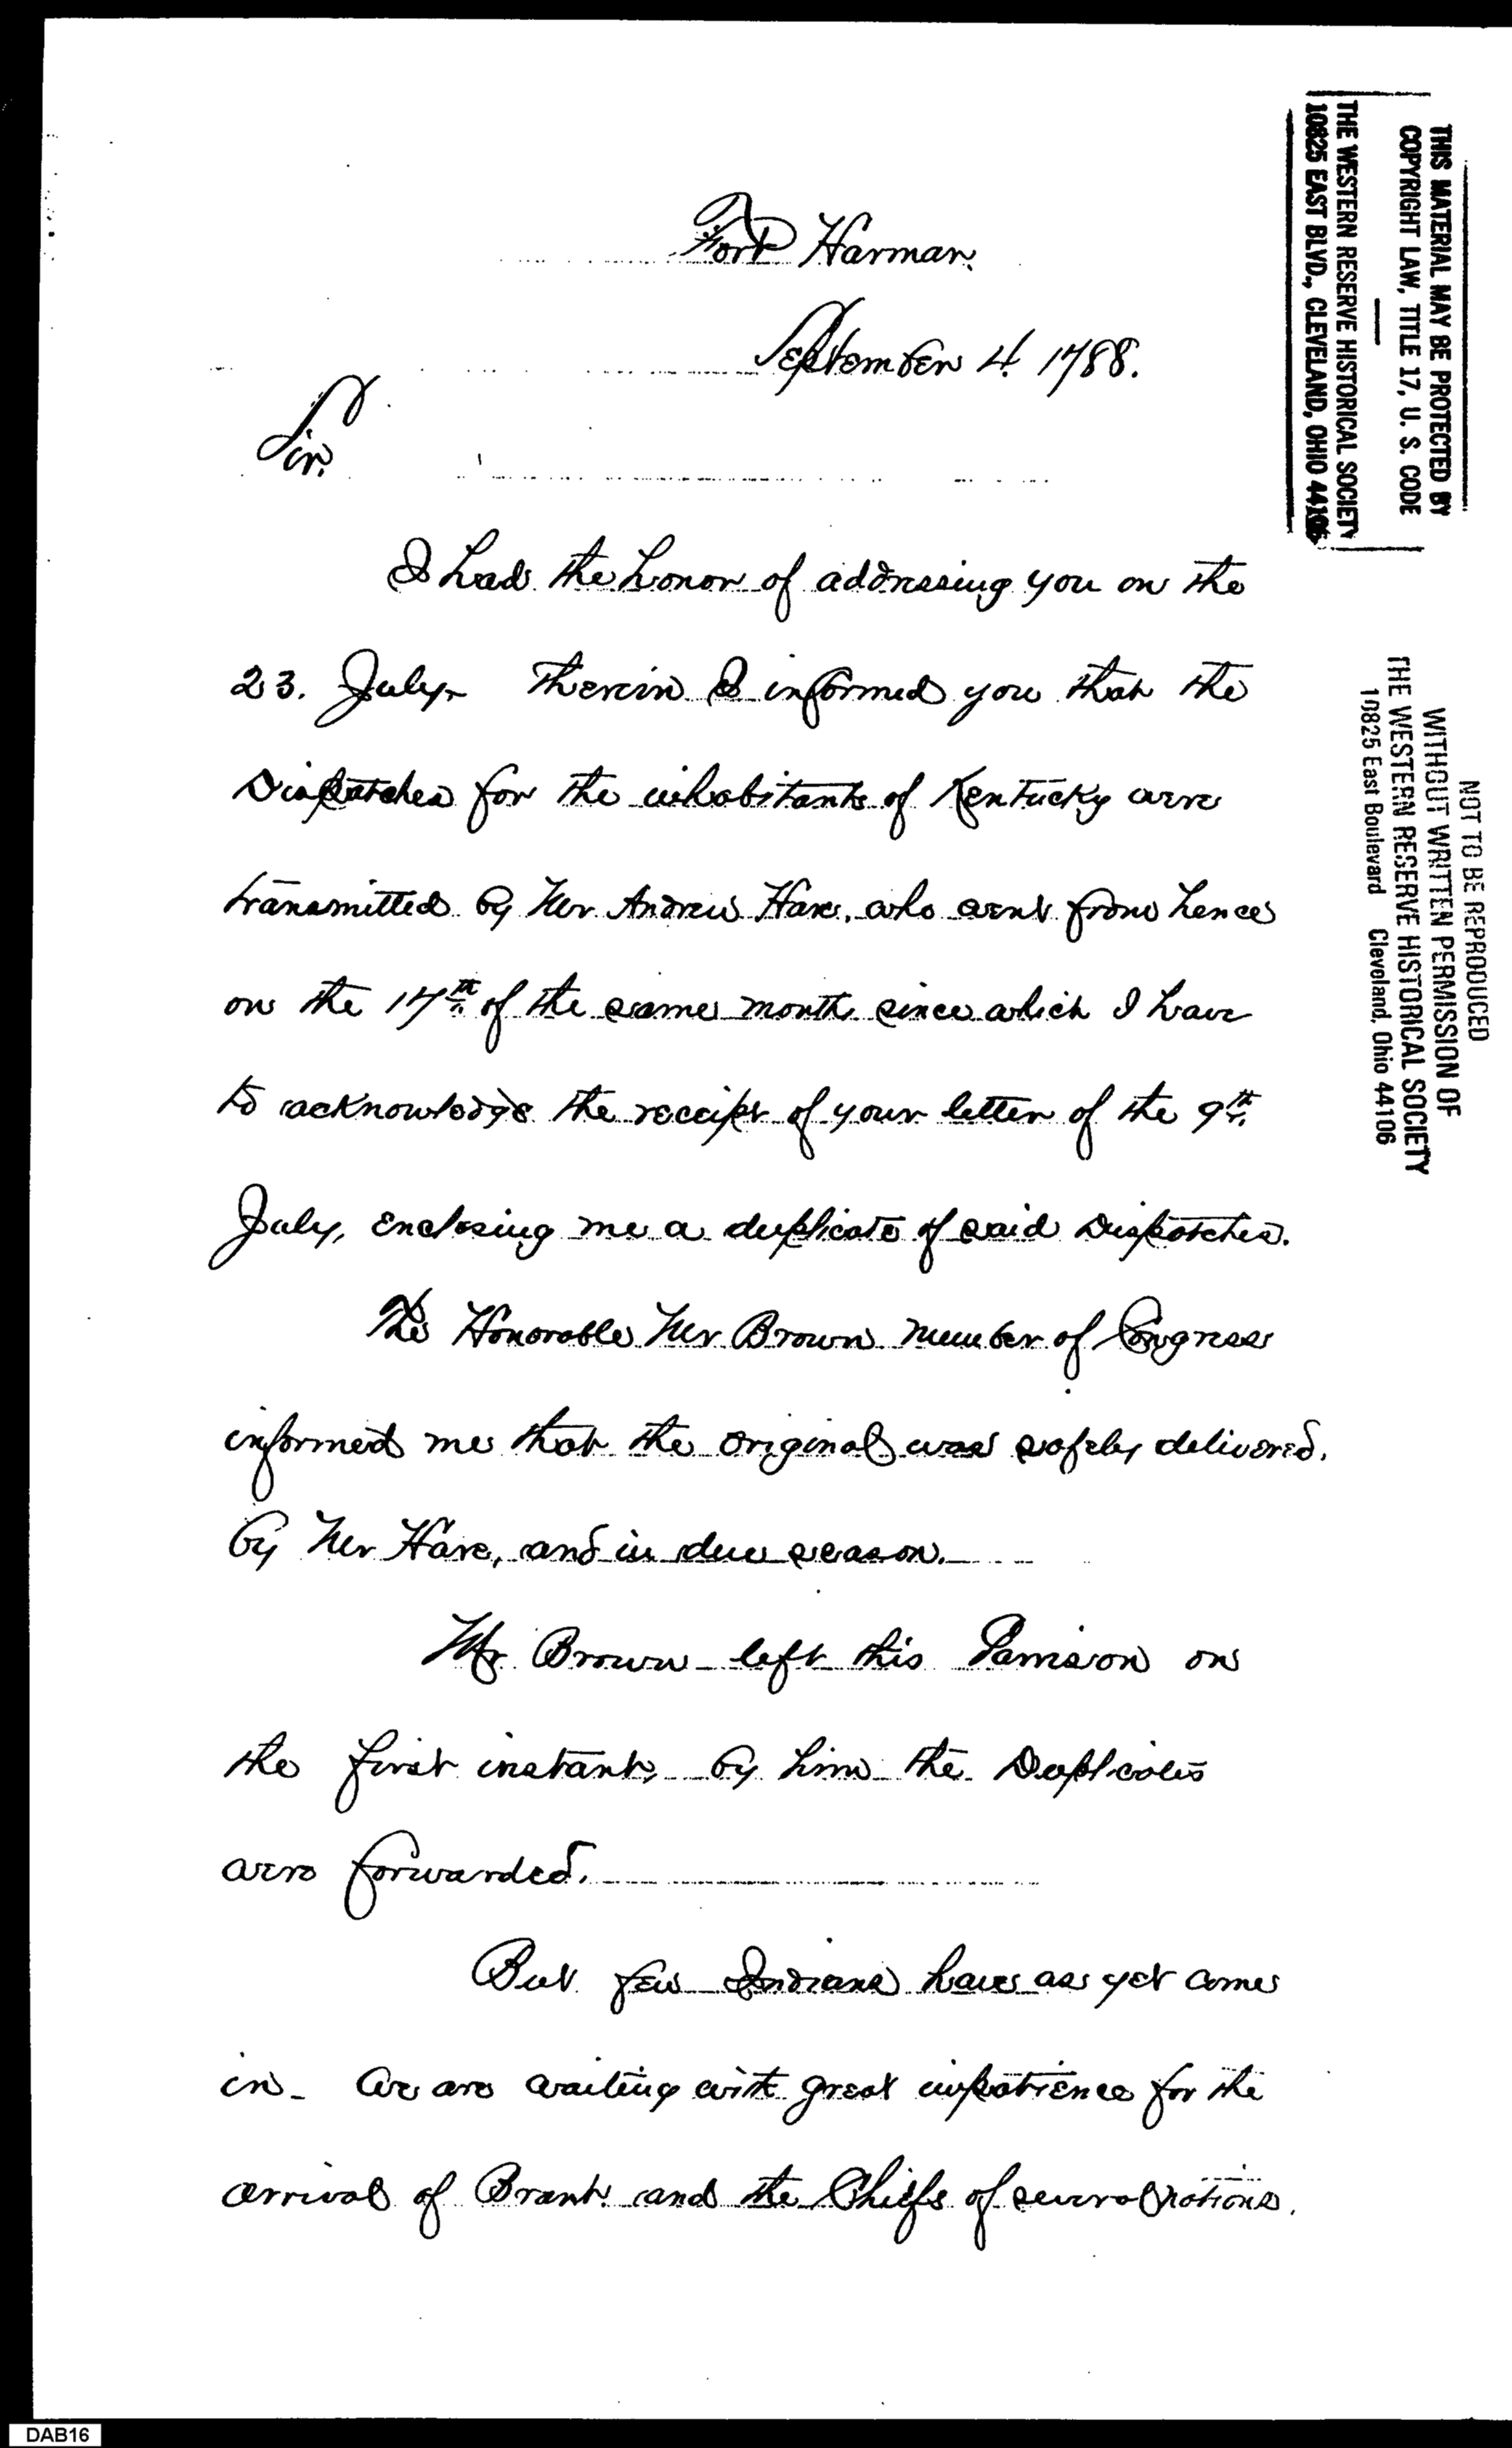 Fort Harmar.
September 4. 1788.
Sir.
I had the honor of addressing you on the
23. July, therein I informed you that the
Dispatches for the inhabitants of Kentucky were
transmitted by Mr Andrew Hare, who went from hence
on the 17th of the same month since which I have
to acknowledge the receipt of your letter of the 9th
July, enclosing me a duplicate of said Dispatches.
The Honorable Mr Brown member of Congress
informed me that the original was safely delivered.
by Mr Hare, and in due season.
Mr Brown left this Garrison on
the first instant, by him the Duplicates
were forwarded.
But few Indians have as yet come
in_ We are waiting with great impatience for the
arrival of Brant and the Chiefs of several nations.
THIS MATERIAL MAY BE PROTECTED BY
COPYRIGHT LAW, TITLE 17, U. S. CODE
THE WESTERN RESERVE HISTORICAL SOCIETY
10825 EAST BLVD., CLEVELAND, OHIO 44106
NOT TO BE REPRODUCED
WITHOUT WRITTEN PERMISSION OF
THE WESTERN RESERVE HISTORICAL SOCIETY
10825 East Boulevard Cleveland, Ohio 44106
DAB16